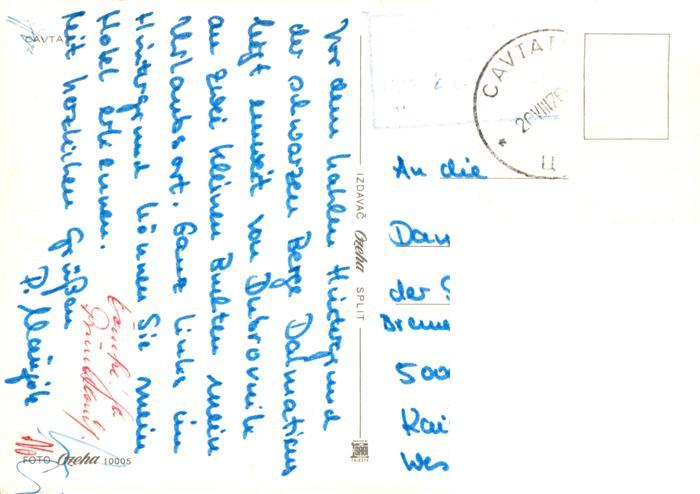 CAVTAT
Vor dem kahlen Hintergrund
der schwarzen Berge Dalmatiens
liegt unweit von Dubrovnik
an zwei kleinen Buchten mein
Urlaubsort. Ganz links im
Hintergrund können Sie mein
Hotel erkennen.
Mit herzlichen Grüßen
P.
IZDAVAČ Ozeha SPLIT
FOTO Ozeha 10005
CAVTAT
An die
Dan
der S
Breme
500
Kai
Wes